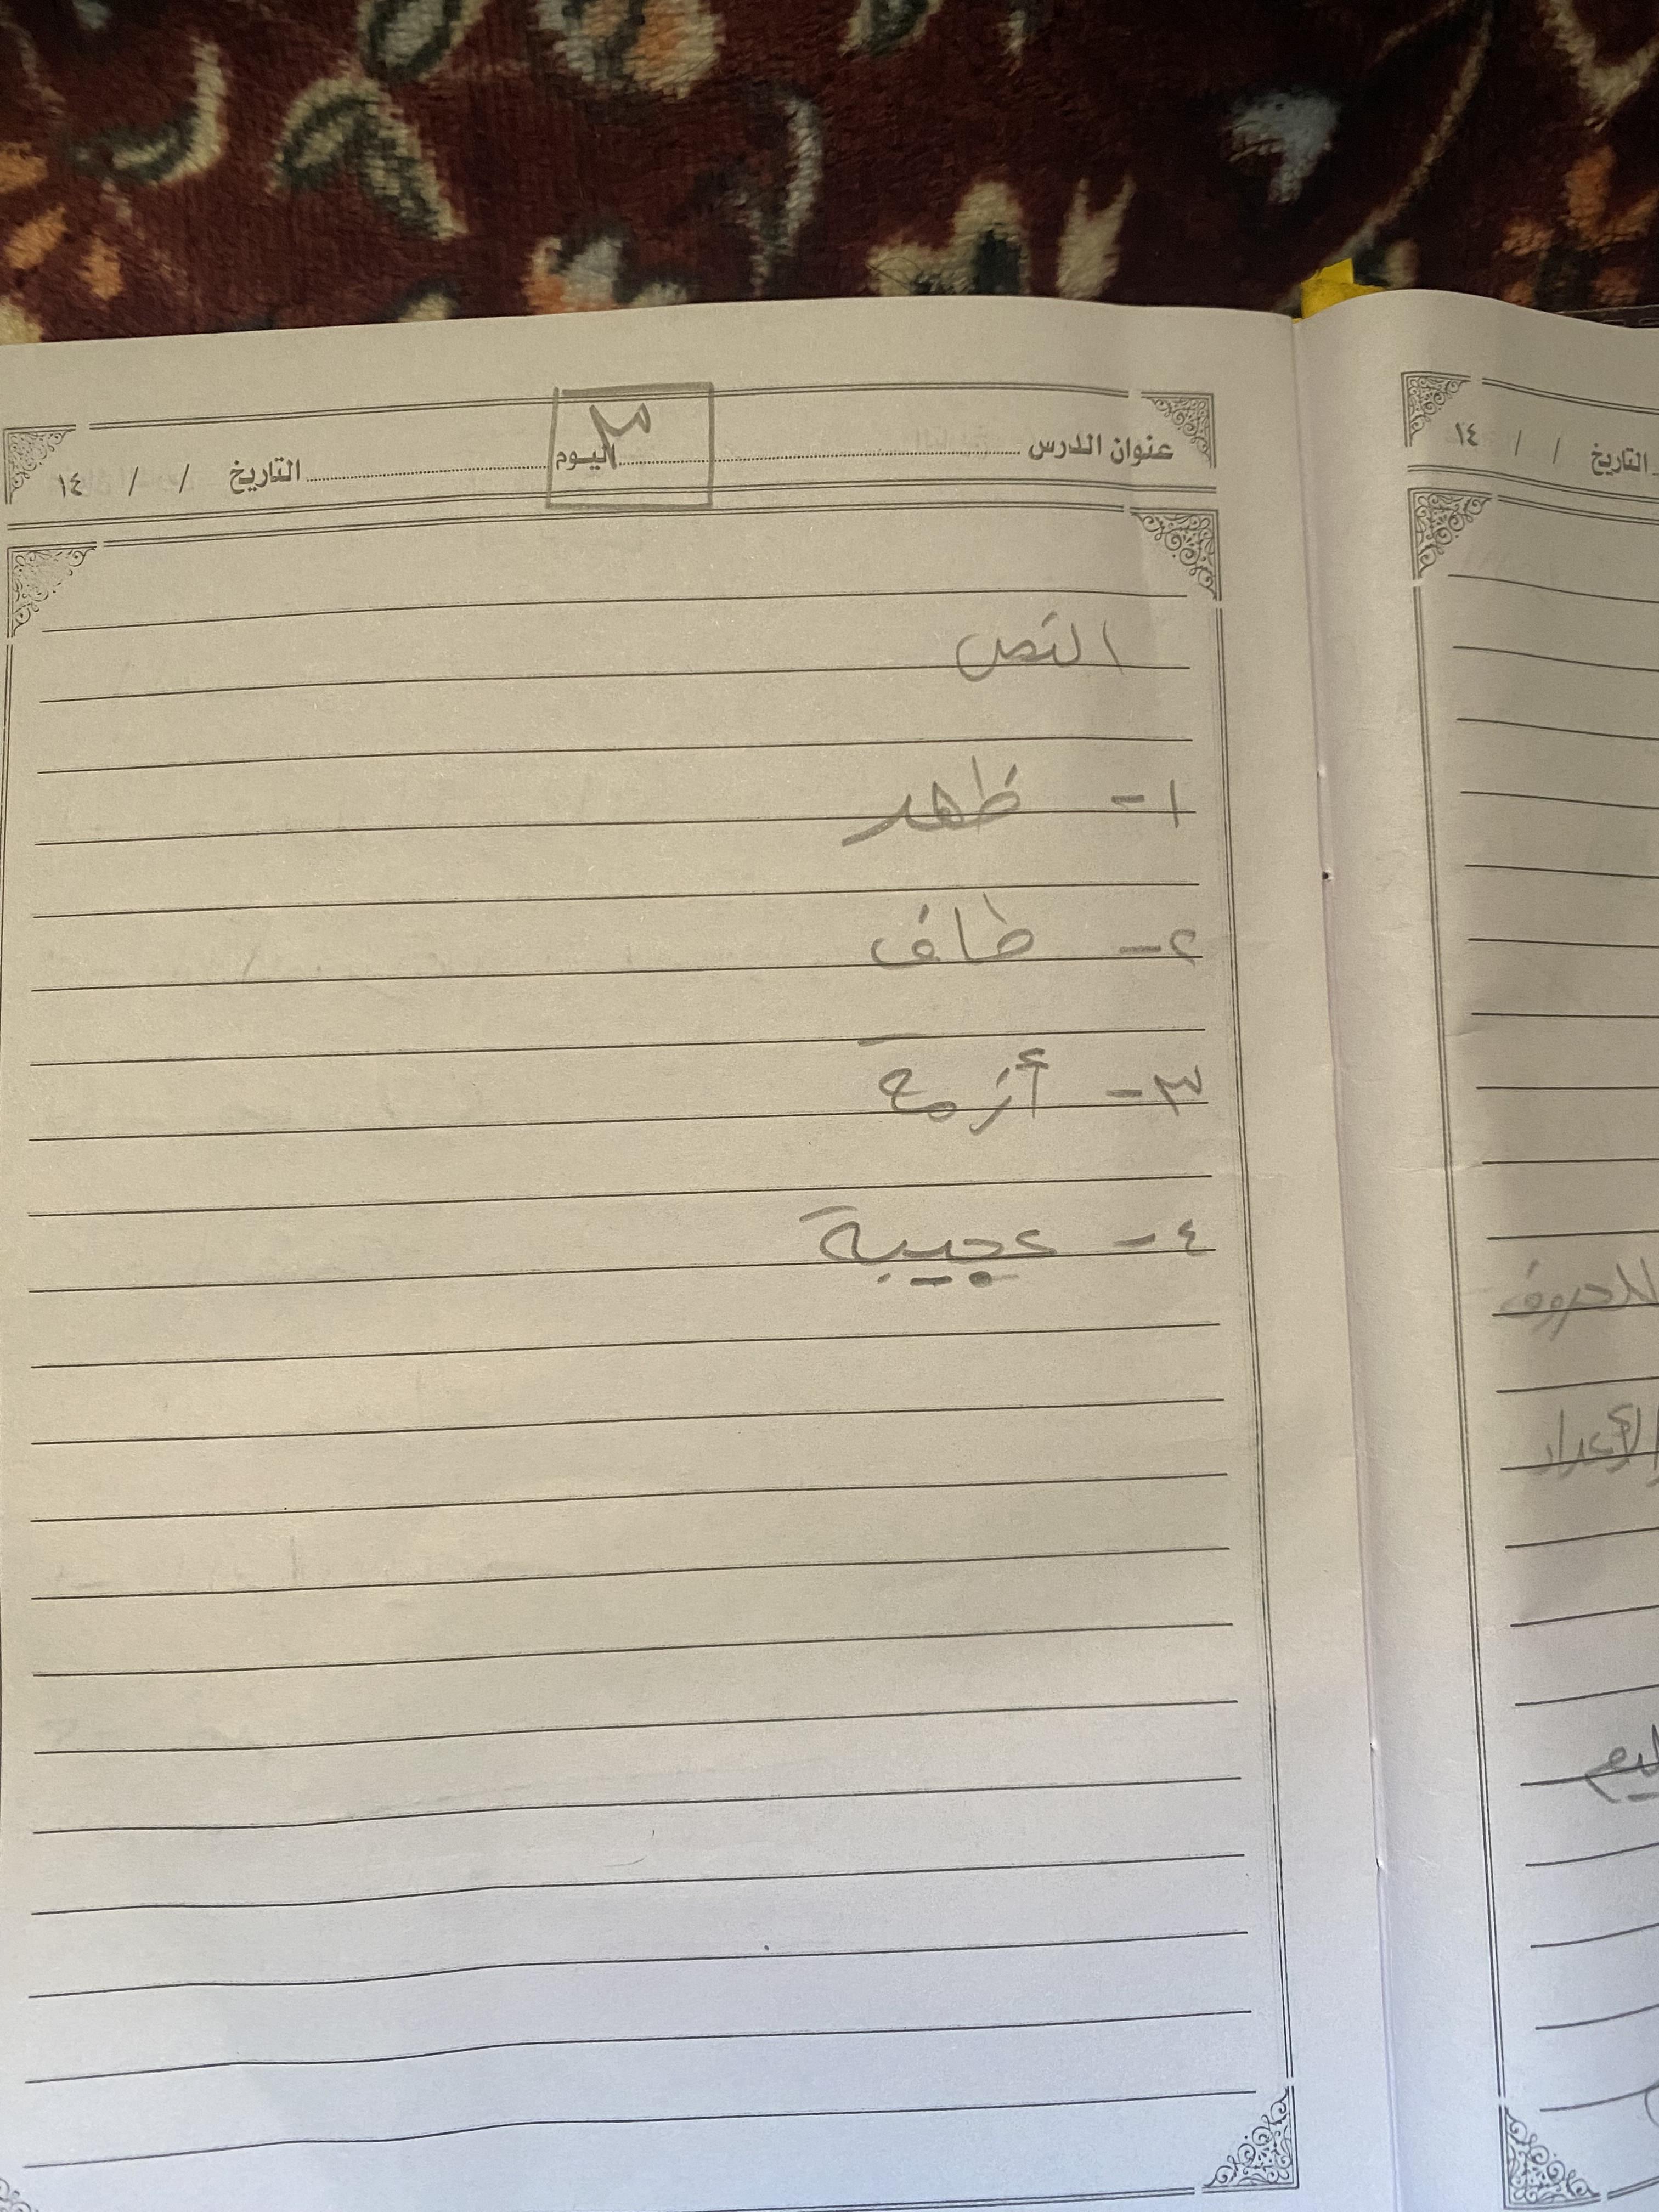 عنوان الدرس اليوم التاريخ / / ١٤
٣
النص
١- ظهر
٢- طاف
٣- أزمة
٤- عجيبة
التاريخ / / ١٤
للحروف
الأعداد